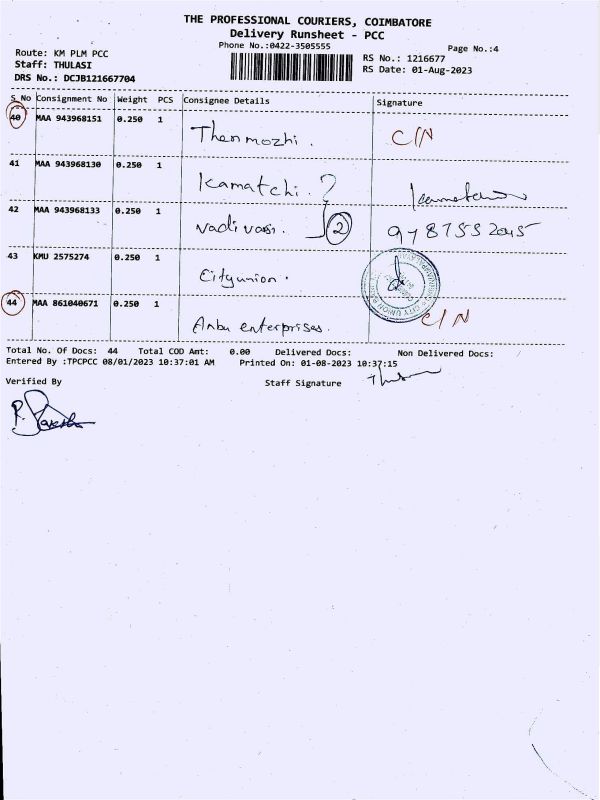 THE PROFESSIONAL COURIERS, COIMBATORE
Delivery Runsheet - PCC
Phone No.:0422-3505555
Page No.:4
Route: KM PLM PCC
Staff: THULASI
DRS No.: DCJB121667704
RS No.: 1216677
RS Date: 01-Aug-2023
S No Consignment No Weight PCS Consignee Details Signature
40 MAA 943968151 0.250 1 Thenmozhi. C/N
41 MAA 943968130 0.250 1 Kamatchi. ?
42 MAA 943968133 0.250 1 Vadivasi. 2
43 KMU 2575274 0.250 1 Cityunion.
CITY UNION BANK
44 MAA 861040671 0.250 1 Anbu enterprises. C/N
Total No. Of Docs: 44 Total COD Amt: 0.00 Delivered Docs: Non Delivered Docs:
Entered By :TPCPCC 08/01/2023 10:37:01 AM Printed On: 01-08-2023 10:37:15
Verified By Staff Signature